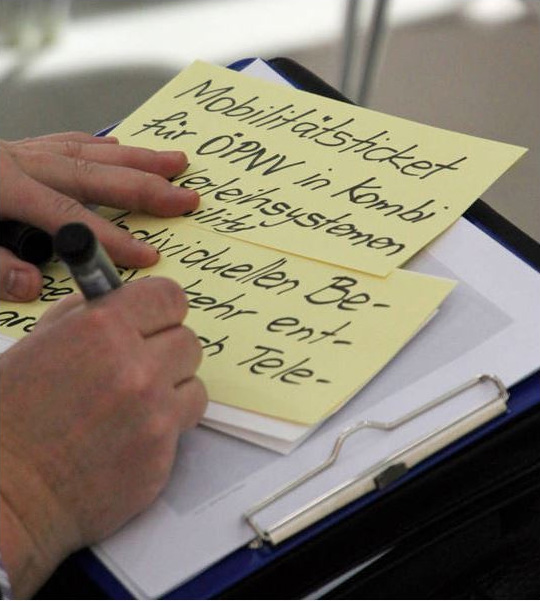 Mobilitätsticket
für ÖPNV in Kombi
erleihsystemen
bility
Individuellen Be-
kehr ent-
ch Tele-